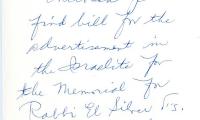 find bill for the
advertisement in
the Israelite for
the Memorial for
Rabbi El Silver